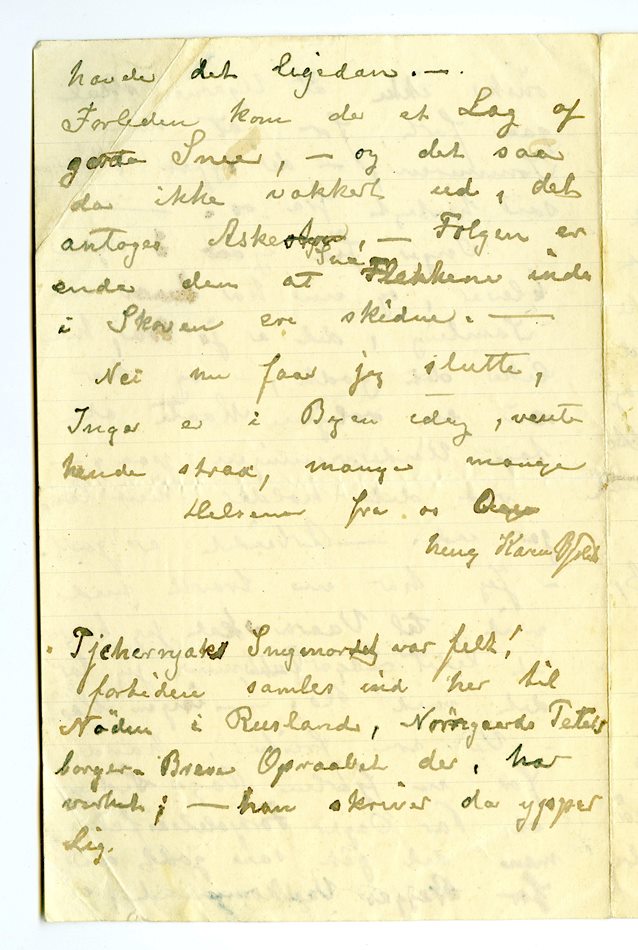 havde det ligedan. —.
Forleden kom der et Lag af
Snee, — og det saa
da ikke vakkert ud, det
antoges Aske, — Følgen er
Sne
ende den at Flekkene inde
i Skoven ere skidne. —
Nei nu faar jeg slutte,
Inga er i Byen idag, vente
hende strax, mange mange
Helsener fra os
Karen
Tjchernyaks Sngmordet var fælt!
fortiden samles ind her til
Nöden i Rusland, Nörregaards Peters
borger-Breve Opraabet der, har
virket; — han skriver da ypper
lig.